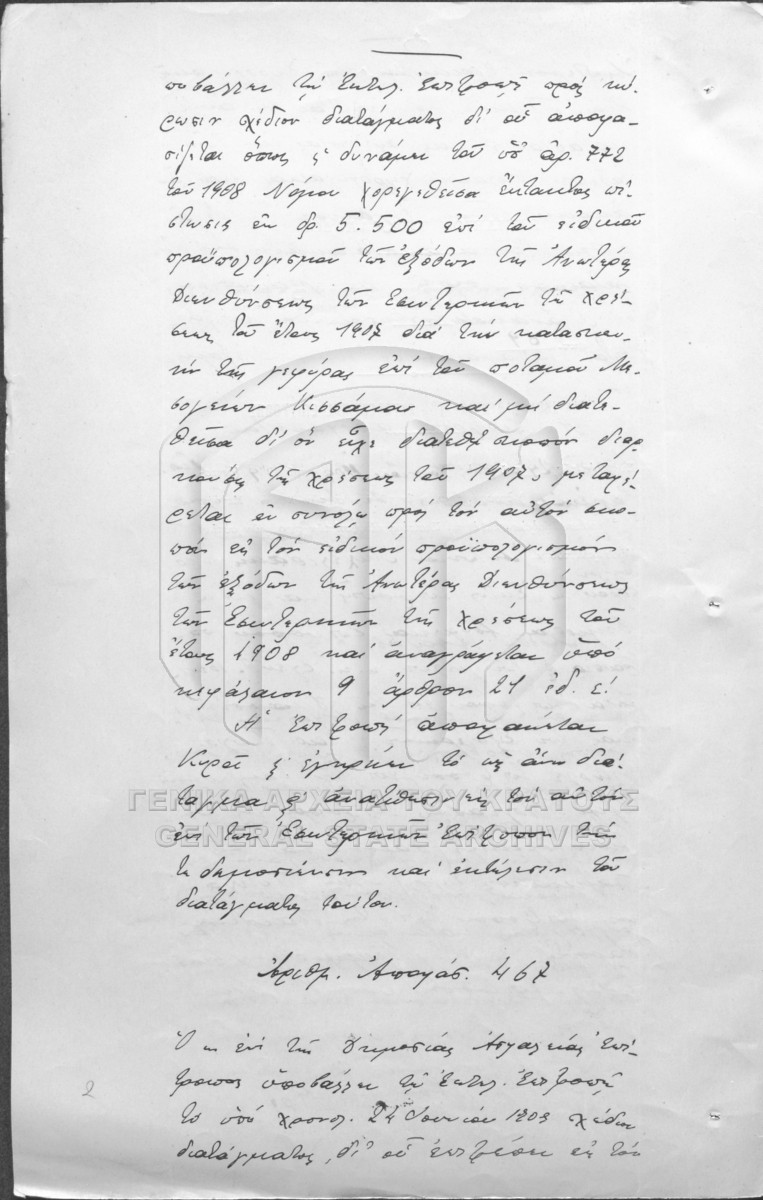 ποβάλλει τῇ Ἐκτελ. Ἐπιτροπῇ πρὸς κύ-
ρωσιν σχέδιον διατάγματος δι' οὗ ἀποφα-
σίζεται ὅπως ἡ δυνάμει τοῦ ὑπ' ἀρ. 772
τοῦ 1908 Νόμου χορηγηθεῖσα ἔκτακτος πί-
στωσις ἐκ δρ. 5.500 ἐπὶ τοῦ εἰδικοῦ
προϋπολογισμοῦ τῶν ἐξόδων τῆς Ἀνωτέρας
Διευθύνσεως τῶν Ἐσωτερικῶν τῆς χρή-
σεως τοῦ ἔτους 1907 διὰ τὴν κατασκευ-
ὴν τῆς γεφύρας ἐπὶ τοῦ ποταμοῦ Με-
σογείων Κισσάμου καὶ μὴ διατε-
θεῖσα δι' ὃν εἶχε διατεθῇ σκοπὸν διαρ-
κούσης τῆς χρήσεως τοῦ 1907, μεταφέ-
ρεται ἐν συνόλῳ πρὸς τὸν αὐτὸν σκο-
πὸν εἰς τὸν εἰδικὸν προϋπολογισμὸν
τῶν ἐξόδων τῆς Ἀνωτέρας Διευθύνσεως
τῶν Ἐσωτερικῶν τῆς χρήσεως τοῦ
ἔτους 1908 καὶ ἀναγράφεται ὑπὸ
κεφάλαιον 9 ἄρθρον 21 ἐδ. ε!
Ἡ Ἐπιτροπὴ ἀποφαίνεται
Κυροῖ ἐγκρίνει τὸ ὡς ἄνω διά-
ταγμα ἀνατίθησιν εἰς τὸν αὐτὸν
ἐπὶ τῶν Ἐσωτερικῶν Ἐπίτροπον τήν
τε δημοσίευσιν καὶ ἐκτέλεσιν τοῦ
διατάγματος τούτου.
Ἀριθμ. Ἀποφάσ. 467
Ὁ ἐπὶ τῆς Δημοσίας Ἀσφαλείας Ἐπί-
τροπος ὑποβάλλει τῇ Ἐκτελ. Ἐπιτροπῇ
τὸ ὑπὸ χρονολ. 24 Ἰουνίου 1909 σχέδιον
διατάγματος, δι' οὗ ἐπιτρέπει εἰς τὸν
2
ΓΕΝΙΚΑ ΑΡΧΕΙΑ ΤΟΥ ΚΡΑΤΟΥΣ
GENERAL STATE ARCHIVES